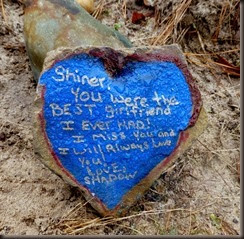 Shiner,
You were the
BEST girlfriend
I Ever HAD!
I miss You and
I Will Always Love
You!
LOVE,
SHADOW